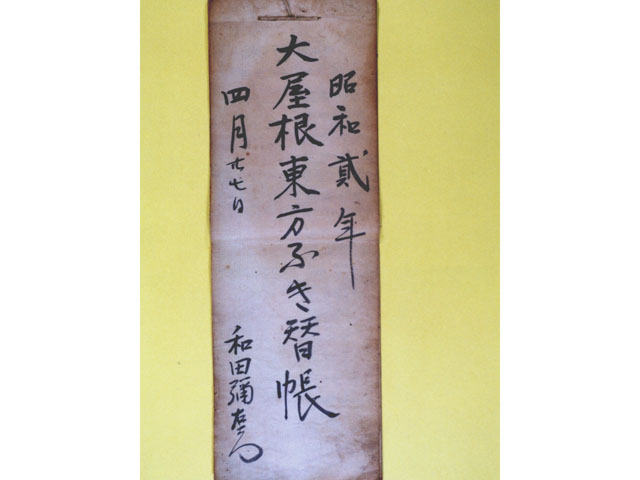 昭和貳年
大屋根東方ふき替帳
四月廿七日
和田彌左衛门